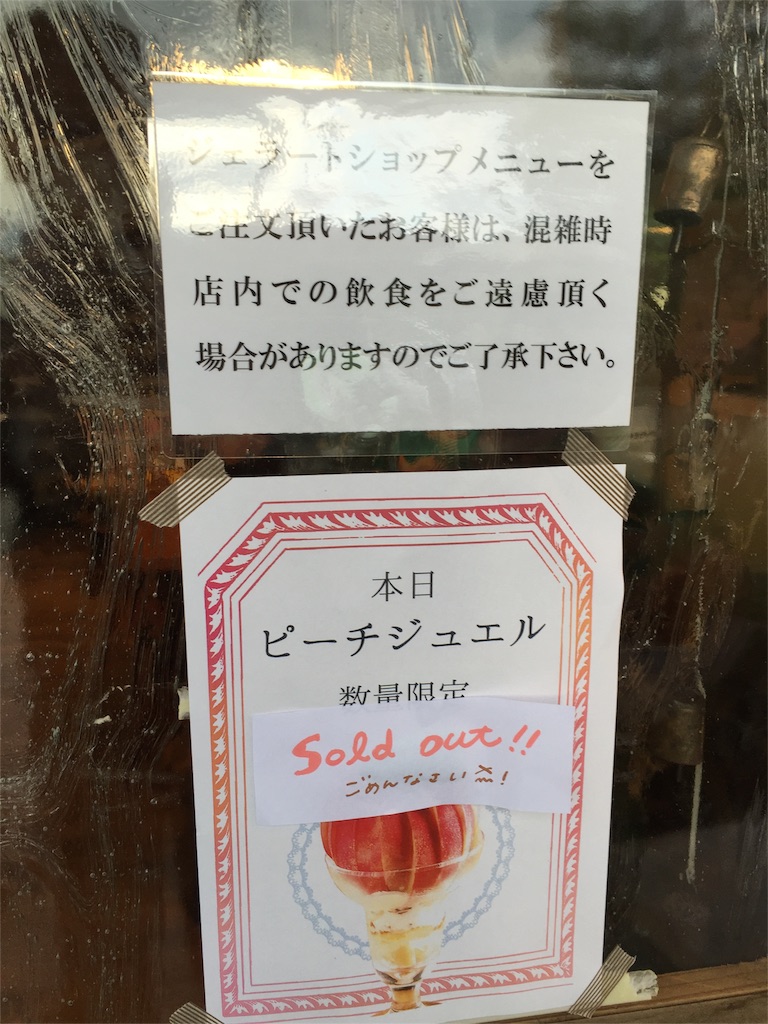 ジェラートショップメニューを
ご注文頂いたお客様は、混雑時
店内での飲食をご遠慮頂く
場合がありますのでご了承下さい。
本日
ピーチジュエル
数量限定
Sold out!!
ごめんなさい!